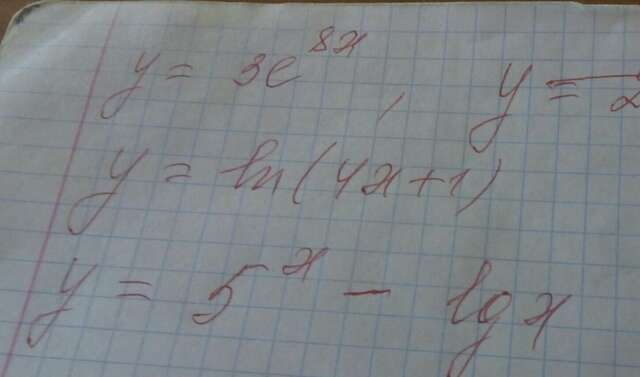 y = 3e^{8x}, y = 2
y = ln(4x+1)
y = 5^x - lg x